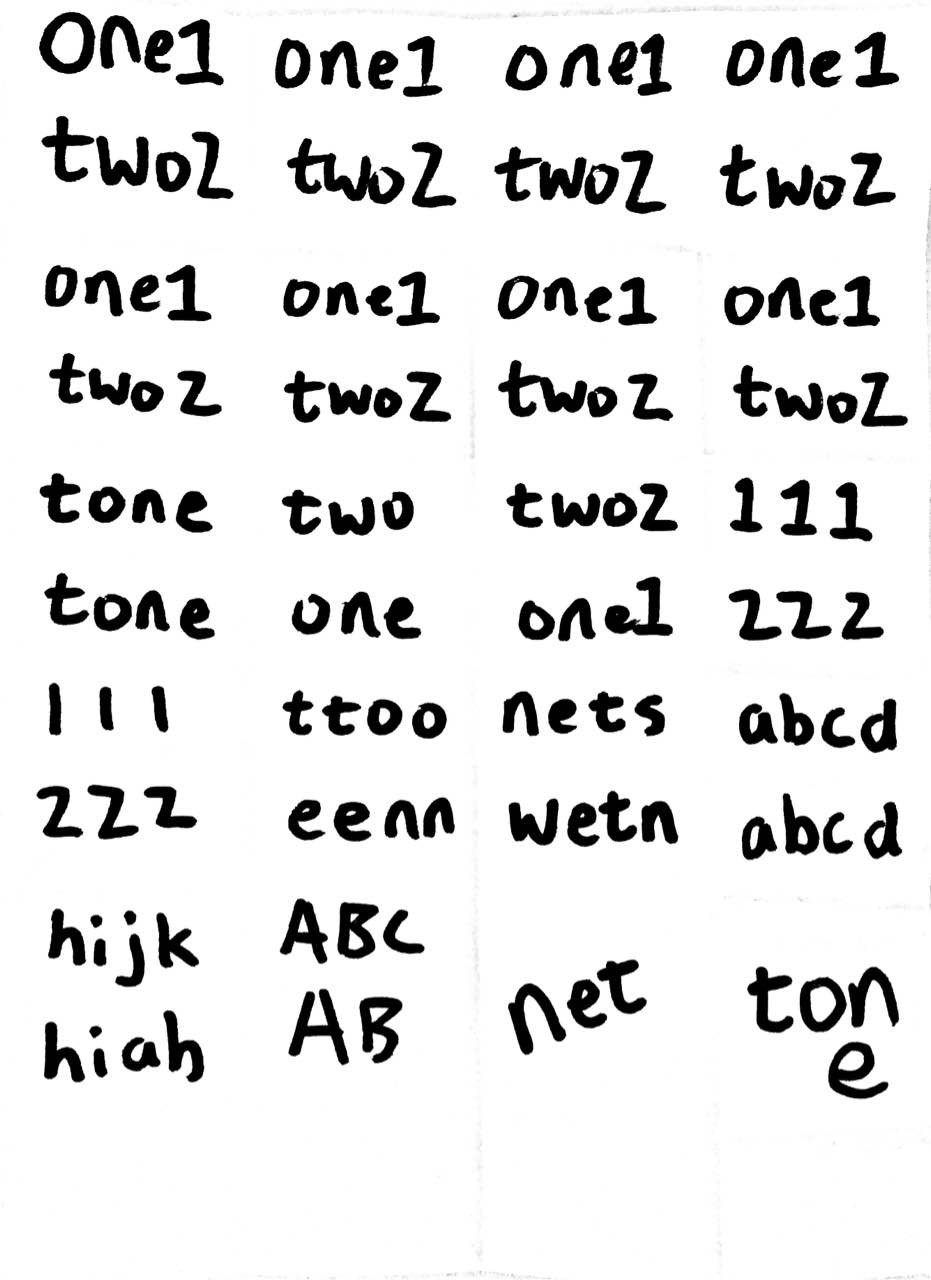 one1 one1 one1 one1
two2 two2 two2 two2
one1 one1 one1 one1
two2 two2 two2 two2
tone two two2 111
tone one one1 222
111 ttoo nets abcd
222 eenn wetn abcd
hijk ABC
net ton
hiah AB
e